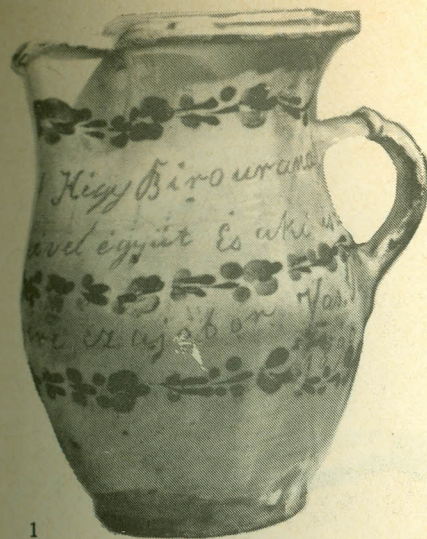 Kigy Birourana
ivel együt És aki is
ez a jo bor Vas.
1